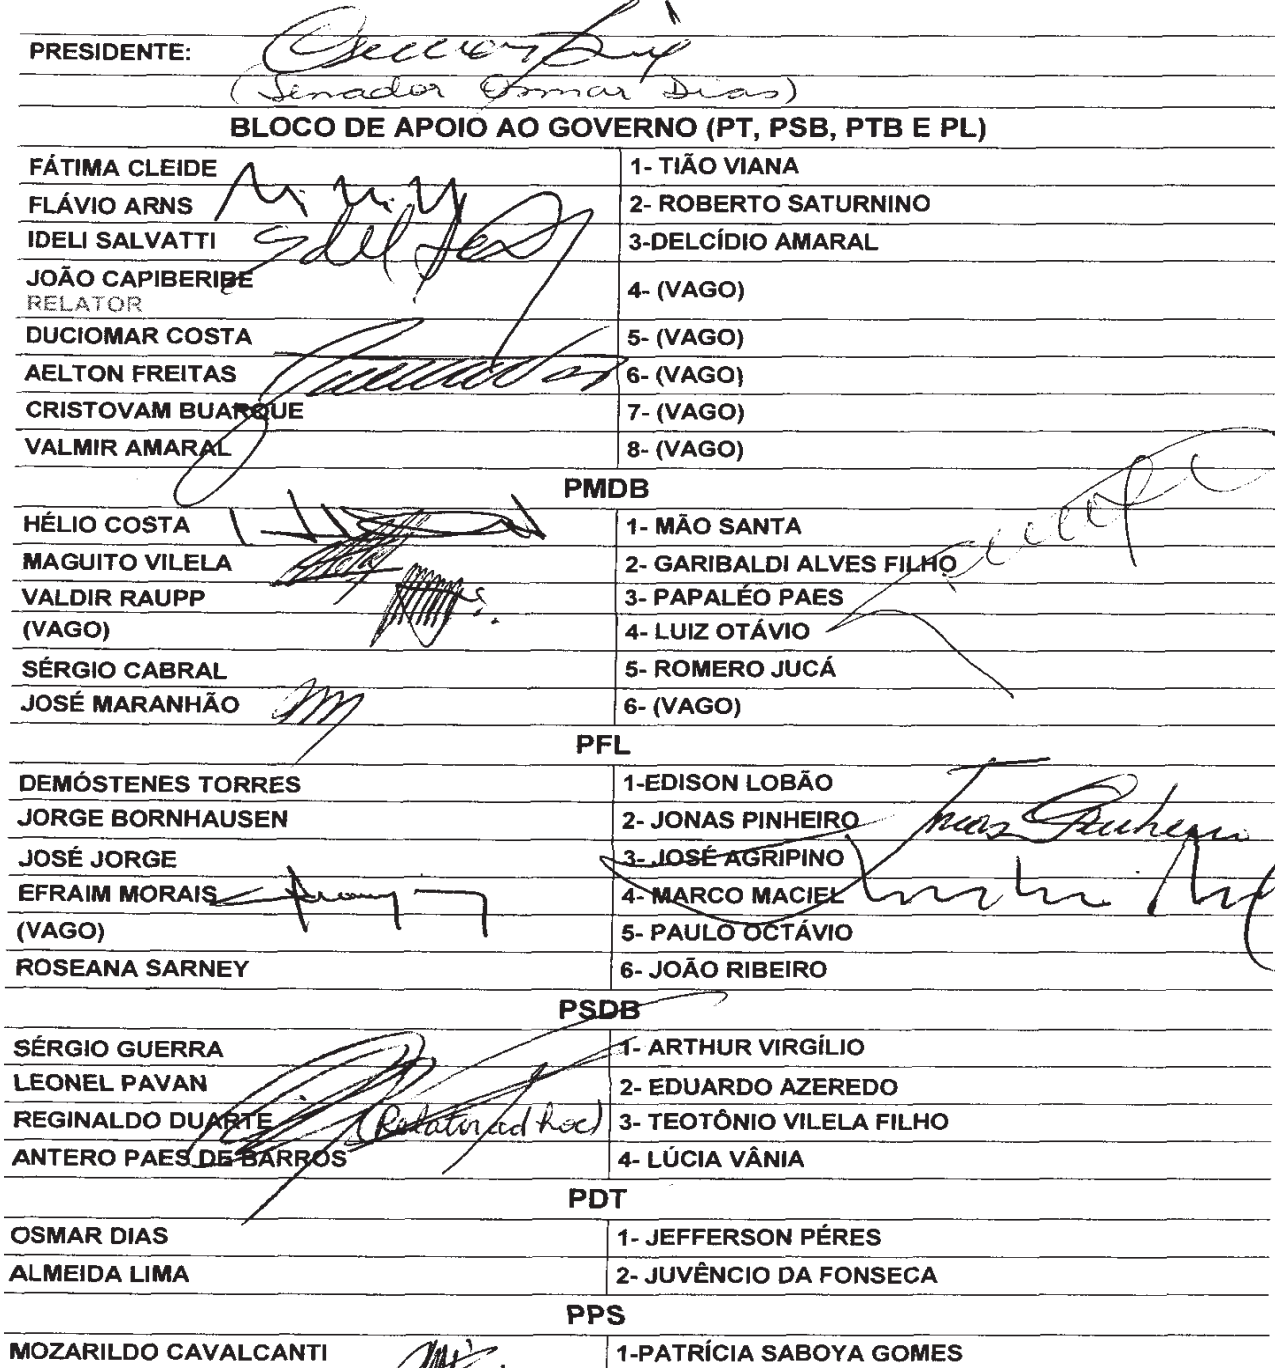 PRESIDENTE:
(Senador Osmar Dias)
BLOCO DE APOIO AO GOVERNO (PT, PSB, PTB E PL)
FÁTIMA CLEIDE 1- TIÃO VIANA
FLÁVIO ARNS 2- ROBERTO SATURNINO
IDELI SALVATTI 3-DELCÍDIO AMARAL
JOÃO CAPIBERIBE 4- (VAGO)
RELATOR
DUCIOMAR COSTA 5- (VAGO)
AELTON FREITAS 6- (VAGO)
CRISTOVAM BUARQUE 7- (VAGO)
VALMIR AMARAL 8- (VAGO)
PMDB
HÉLIO COSTA 1- MÃO SANTA
MAGUITO VILELA 2- GARIBALDI ALVES FILHO
VALDIR RAUPP 3- PAPALÉO PAES
(VAGO) 4- LUIZ OTÁVIO
SÉRGIO CABRAL 5- ROMERO JUCÁ
JOSÉ MARANHÃO 6- (VAGO)
PFL
DEMÓSTENES TORRES 1-EDISON LOBÃO
JORGE BORNHAUSEN 2- JONAS PINHEIRO
JOSÉ JORGE 3- JOSÉ AGRIPINO
EFRAIM MORAIS 4- MARCO MACIEL
(VAGO) 5- PAULO OCTÁVIO
ROSEANA SARNEY 6- JOÃO RIBEIRO
PSDB
SÉRGIO GUERRA 1- ARTHUR VIRGÍLIO
LEONEL PAVAN 2- EDUARDO AZEREDO
REGINALDO DUARTE (Relator ad hoc) 3- TEOTÔNIO VILELA FILHO
ANTERO PAES DE BARROS 4- LÚCIA VÂNIA
PDT
OSMAR DIAS 1- JEFFERSON PÉRES
ALMEIDA LIMA 2- JUVÊNCIO DA FONSECA
PPS
MOZARILDO CAVALCANTI 1-PATRÍCIA SABOYA GOMES